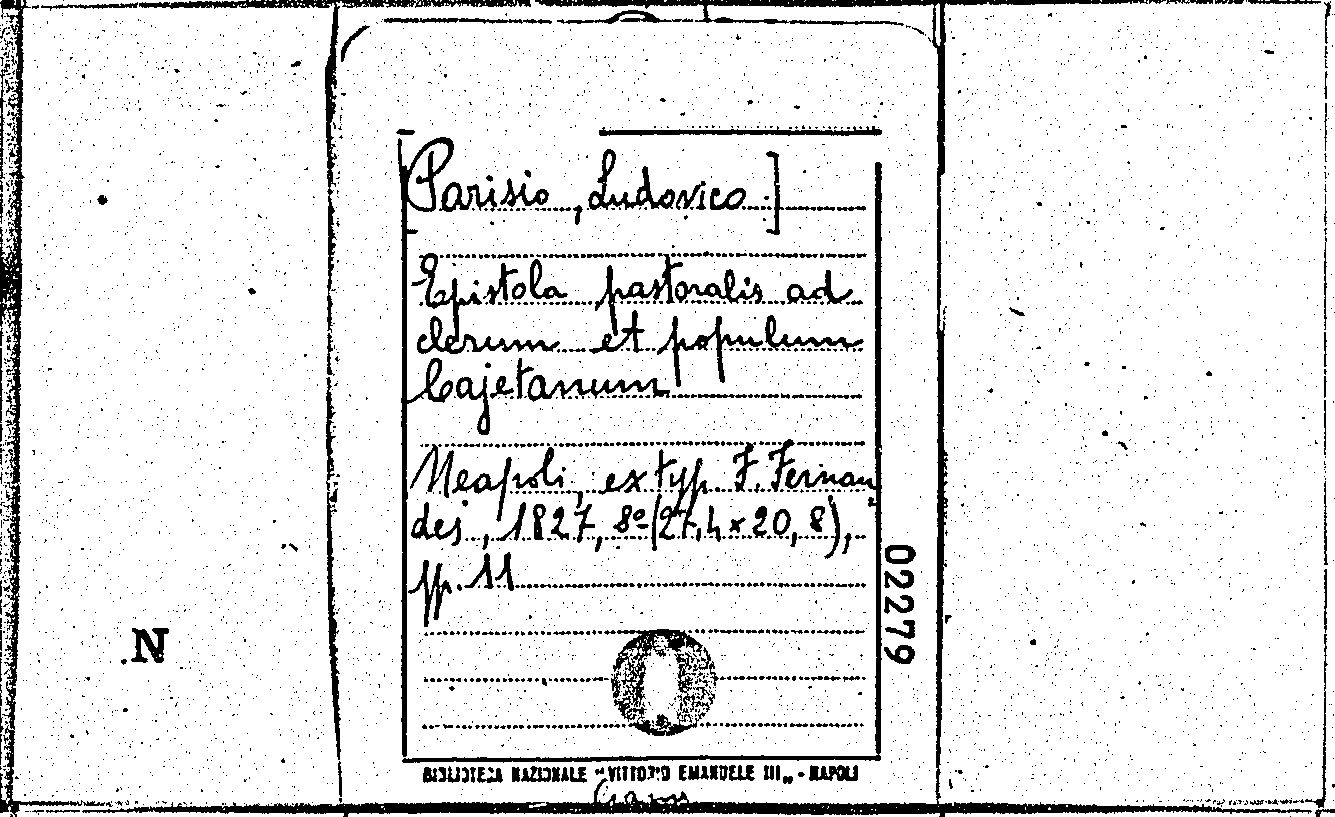 [Parisio, Ludovico.]
Epistola pastoralis ad
clerum et populum
Cajetanum
Neapoli, ex typ. F. Fernan
dej, 1827, 8º (27,4 x 20,8),
pp. 11
02279
N
BIBLIOTECA NAZIONALE "VITTORIO EMANUELE III" - NAPOLI